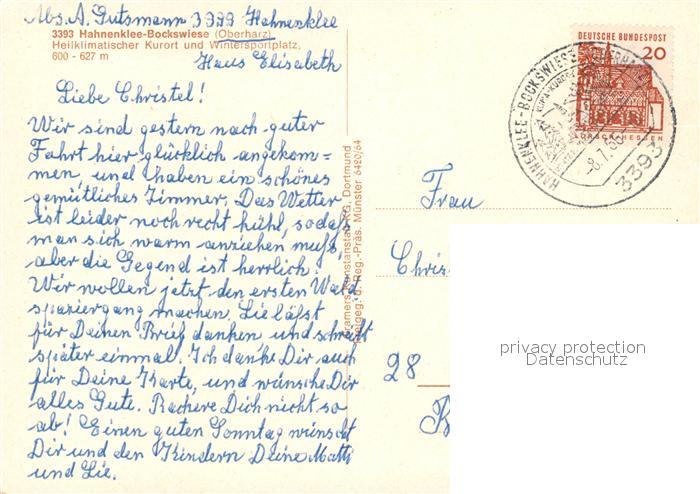 Abs. A. Gutsmann 3393 Hahnenklee
3393 Hahnenklee-Bockswiese (Oberharz)
Heilklimatischer Kurort und Wintersportplatz,
600 - 627 m
Haus Elisabeth
Liebe Christel!
Wir sind gestern nach guter
Fahrt hier glücklich angekom=
men, und haben ein schönes
gemütliches Zimmer. Das Wetter
ist leider noch recht kühl, sodaß
man sich warm anziehen muß,
aber die Gegend ist herrlich.
Wir wollen jetzt den ersten Wald
spaziergang machen. Lie läßt
für Deinen Brief danken, und schreibt
später einmal. Ich danke Dir auch
für Deine Karte, und wünsche Dir
alles Gute. Rackere Dich nicht so
ab! Einen guten Sonntag wünscht
Dir und den Kindern Deine Mutti
und Lie.
Cramers Kunstanstalt KG, Dortmund
Freigeg. d. Reg.-Präs. Münster 6420/64
DEUTSCHE BUNDESPOST
20
LORSCH HESSEN
HAHNENKLEE-BOCKSWIESE OBERHARZ
-8.7.66
3393
Frau
Chris
28
privacy protection
Datenschutz